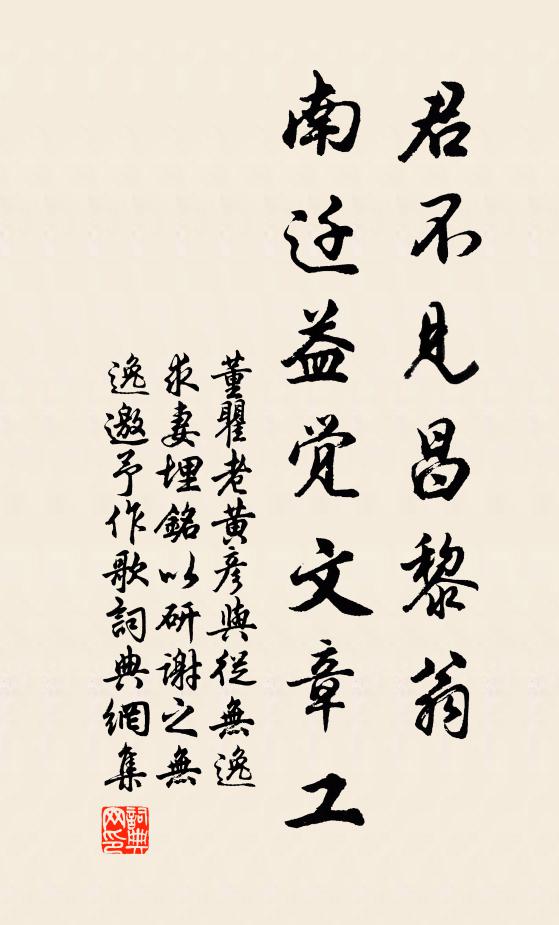 君不见昌黎翁
南迁益觉文章工
董瞿老黄彦與従無逸
求妻埋銘以研谢之無
逸邀予作歌詞典網集
詞典
网印